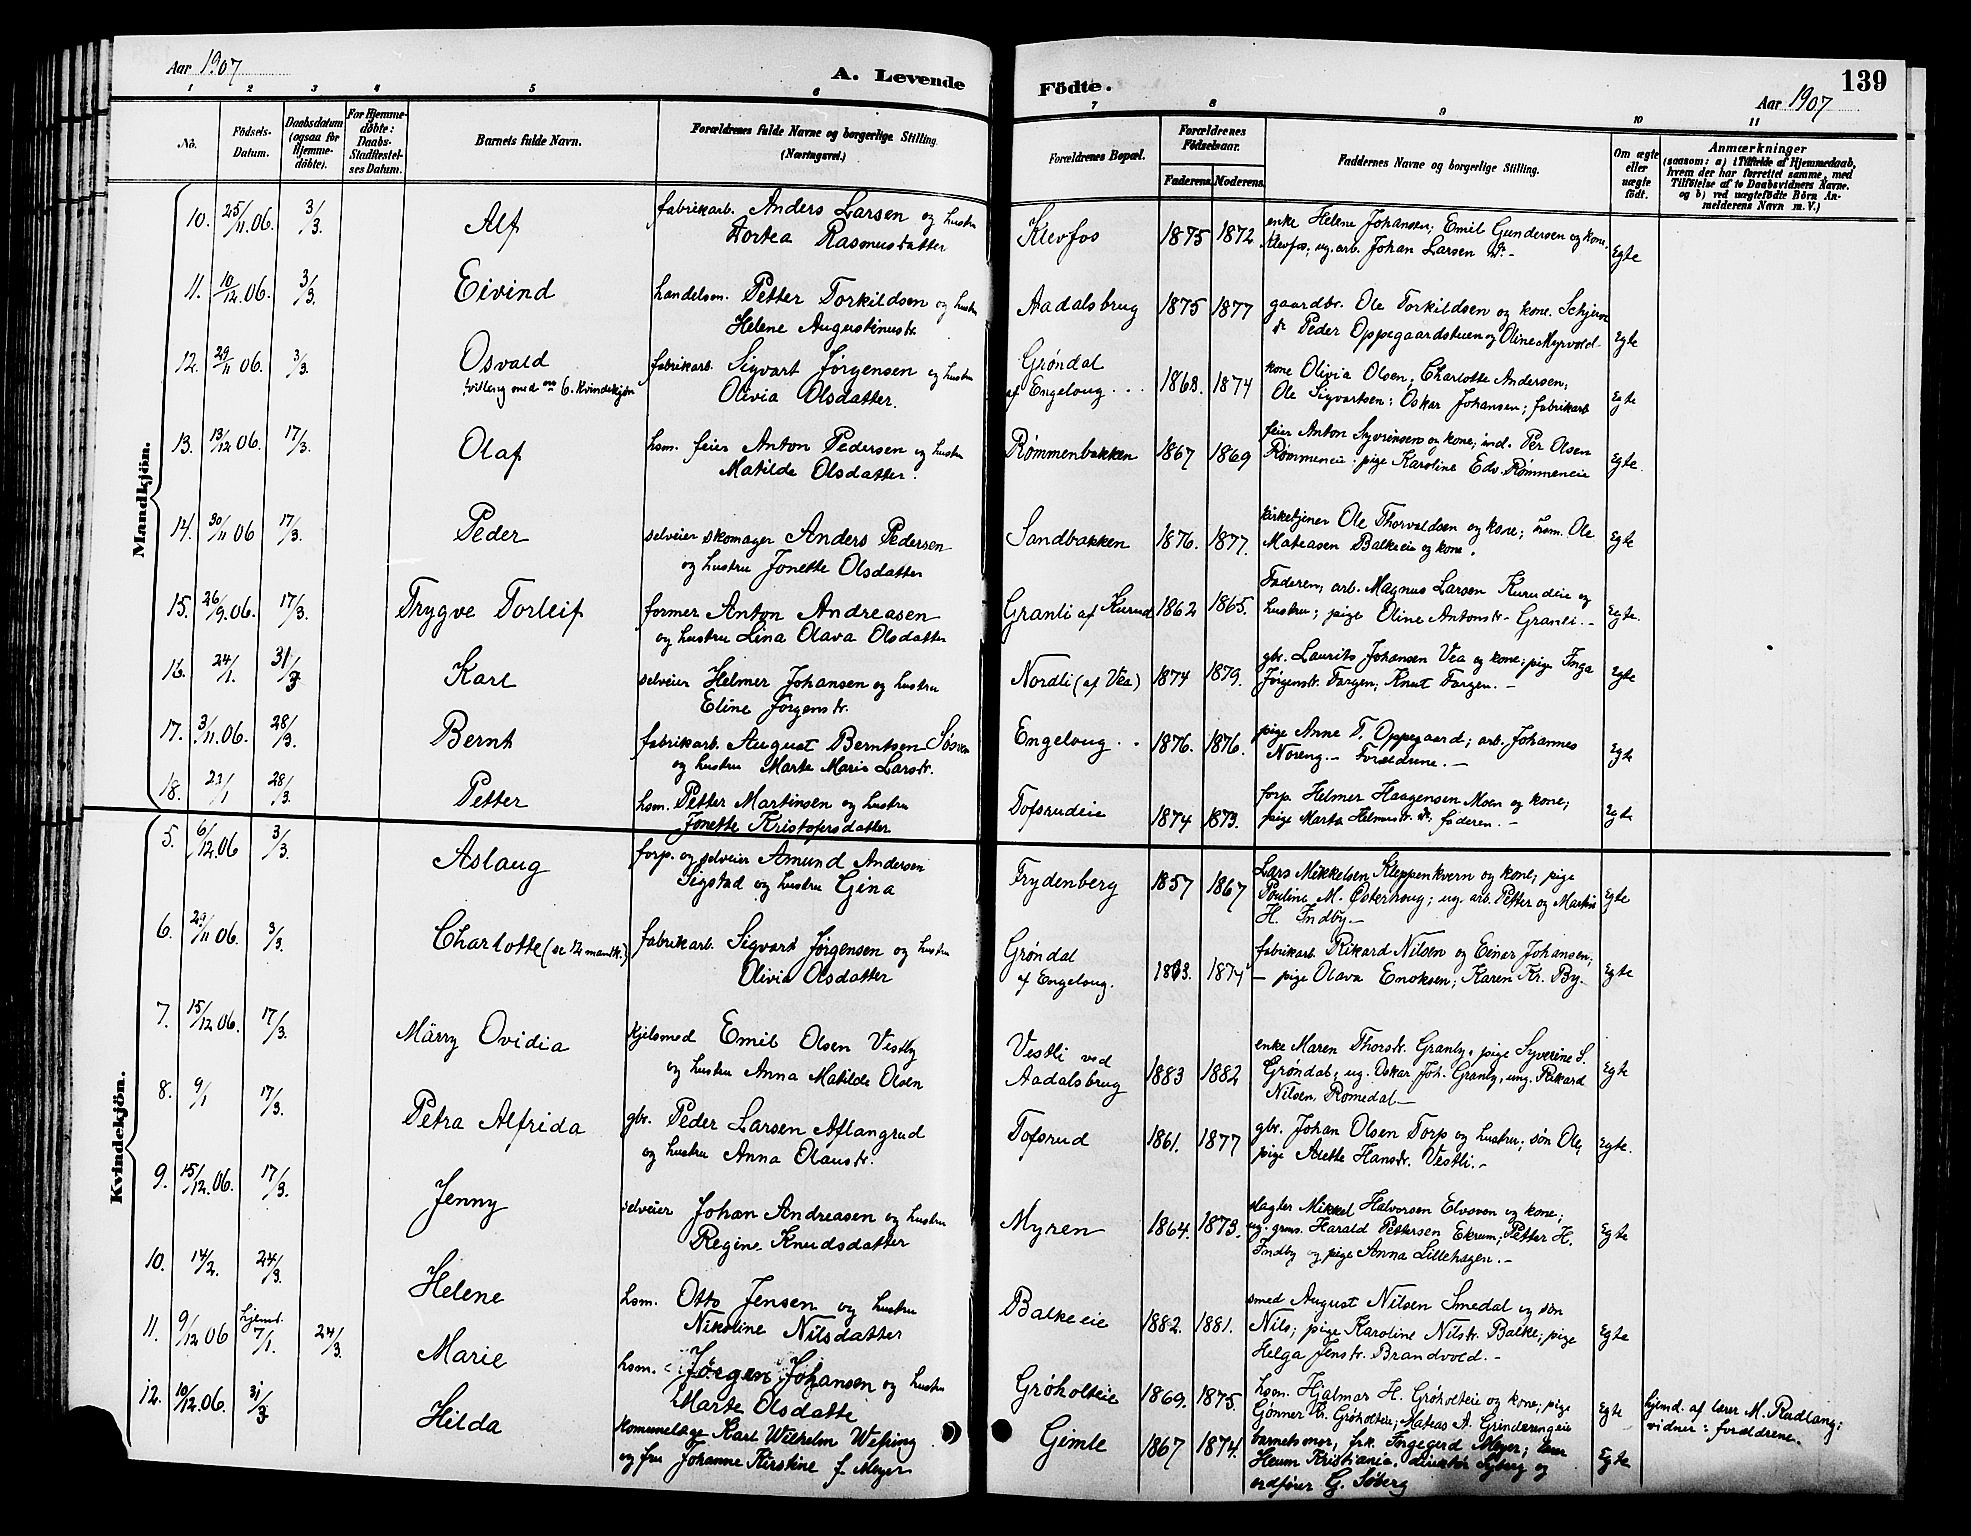 Aar 1907
A. Levende
Födte.
139
Aar 1907
1 2 3 4 5 6 7 8 9 10 11
No.
Födsels-Datum.
Daabsdatum (ogsaa for Hjemme-döbte).
For Hjemme-döbte: Daabs-Stadfæstel-ses Datum.
Barnets fulde Navn.
Forældrenes fulde Navne og borgerlige Stilling (Næringsvei.)
Forældrenes Bopæl.
Forældrenes Födselsaar.
Faderens. Moderens.
Faddernes Navne og borgerlige Stilling.
Om ægte eller uægte födt.
Anmærkninger
(saasom: a) i Tilfælde af Hjemmedaab,
hvem der har forrettet samme, med
Tilföielse af to Daabsvidners Navne.
og b) ved uægtefödte Börn An-
melderens Navn m. V.)
Mandkjön.
10. 25/11.06. 3/3. Alf fabrikarb. Anders Larsen og hustru
Dortea Rasmusdatter
Klevfos 1875 1872 enke Helene Johansen; Emil Gundersen og kone.
Klevfos; ug. arb. Johan Larsen
Egte
11. 10/12.06. 3/3. Eivind handelsm. Petter Torkildsen og hustru
Helene Augustinustr.
Aadalsbrug 1875 1877 gaardbr. Ole Torkildsen og kone.
Peder Oppegaardstuen og Oline Myrvold.
Egte
12. 29/11 06. 3/3. Osvald
tvilling med no 6. Kvindekjøn
fabrikarb. Sigvart Jørgensen og hustru
Olivia Olsdatter.
Grøndal
af Engeloug... 1868. 1874 kone Olivia Olsen; Charlotte Andersen;
Ole Sigvartsen; Oskar Johansen; fabrikarb
Egte
13. 13/12 06. 17/3. Olaf hsm. feier Anton Pedersen og hustru
Matilde Olsdatter.
Rømmenbakken 1867 1869 feier Anton Syversen og kone; ind. Per Olsen
Rømmeneie; pige Karoline Eds. Rømmeneie
Egte.
14. 30/11 06 17/3. Peder selveier skomager Anders Pedersen
og hustru Jonette Olsdatter
Sandbakken 1876. 1877. kirketjener Ole Thorvaldsen og kone; hsm. Ole
Mateasen Balkeeie og kone.
Egte
15. 26/9.06. 17/3. Trygve Torleif former Anton Andreasen
og hustru Lina Olava Olsdatter
Granli af Kurud 1862 1865. Faderen, arb. Magnus Larsen Kurudeie og
hustru; pige Oline Antonstr. Granli.-
Egte.
16. 24/1. 31/3 Karl selveier Helmer Johansen og hustru
Eline Jørgenstr.
Nordli (af Vea) 1874 1879. gbr. Laurits Johansen Vea og kone; pige Inga
Jørgenstr. Fargen; Knut Fargen.-
Egte
17. 3/11.06. 28/3. Bernt fabrikarb. August Berntsen
og hustru Marte Marie Larstr.
Engeloug.. 1876. 1876. pige Anne T. Oppegaard; arb. Johannes
Noreng.- Forældrene.-
Egte
18. 21/1 28/3. Petter hsm. Petter Martinsen og hustru
Jonette Kristofersdatter
Tofsrudeie 1874 1873. forp. Helmer Haagensen Moen og kone;
pige Marta Helmerstr. faderen.-
Egte
Kvindekjön.
5. 6/12.06 3/3. Aslaug forp. og selveier Amund Andersen
Sigstad og hustru Gina
Frydenberg 1857 1867 Lars Mikkelsen Kleppenkvern og kone; pige
Pouline M. Østerhoug; ug. arb. Petter og Martin
H. Indby.-
Egte
6. 29/11 06. 3/3. Charlotte (se 12 mandk.) fabrikarb. Sigvard Jørgensen og hustru
Olivia Olsdatter
Grøndal
af Engeloug. 1874 fabrikarb. Rikard Nilsen og Einer Johansen;
- pige Olava Enoksen; Karen Kr. By.
Egte
7. 15/12 06. 17/3. Märry Ovidia kjelsmed Emil Olsen Vestby
og hustru Anna Matilde Olsen
Vestli ved
Aadalsbrug 1883 1882 enke Maren Thorstr. Granby, pige Syverine S.
Grøndal, ug. Oskar Joh. Granby, ung. Rikard
Nilsen, Romedal.-
Egte
8. 9/1 17/3. Petra Alfrida gbr. Peder Larsen Aflangrud
og hustru Anna Olaustr.
Tofsrud 1861. 1877 gbr. Johan Olsen Torp og hustru; søn Ole,
pige Alette Hanstr. Vestli.-
Egte.
9. 15/12.06. 17/3. Jenny selveier Johan Andreasen og hustru
Regine Knudsdatter
Myren 1864. 1873. slagter Mikkel Halvorsen Elvsven og kone;
ug. grms. Harald Pettersen Ekrum; Petter H.
Indby og pige Anna Lillehagen.-
Egte
10. 14/2. 24/3. Helene hsm. Otto Jensen og hustru
Nikoline Nilsdatter
Balkeeie 1882. 1881. smed August Nilsen Smedal og søn
Nils; pige Karoline Nilstr. Balke; pige
Helga Jenstr. Brandvold.-
Egte
11. 9/12 06 hjemd. 7/1. 24/3. Marie hsm. Jørgen Johansen og hustru
Marte Olsdatte
Grøholteie 1869. 1875. hsm. Hjalmar H. Grøholteie og kone; pige
Gønner Kr. Grøholteie; Mateas A. Grinderengeie
Egte hjemd. af lærer M. Rudlang;
vidner: forældrene.
12. 10/12.06. 31/3 Hilda komunelæge Karl Wilhelm Wefring
og fru Johanne Kirstine f. Meyer
Gimle 1867 1874. barnets mor, frk. Ingegerd Meyer;
Heum Kristiania, direktør Syberg og
ordfører G. Søberg
Egte